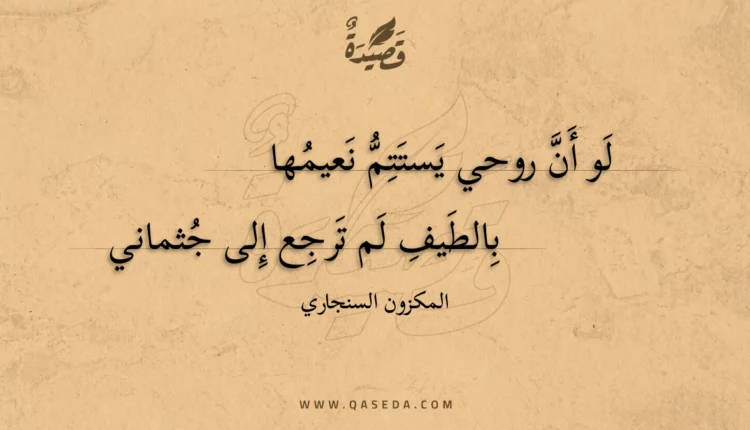 قَصِيْدَةٌ
لَو أَنَّ روحي يَستَتِمُّ نَعيمُها
بِالطَيفِ لَم تَرجِع إِلى جُثماني
المكزون السنجاري
WWW.QASEDA.COM